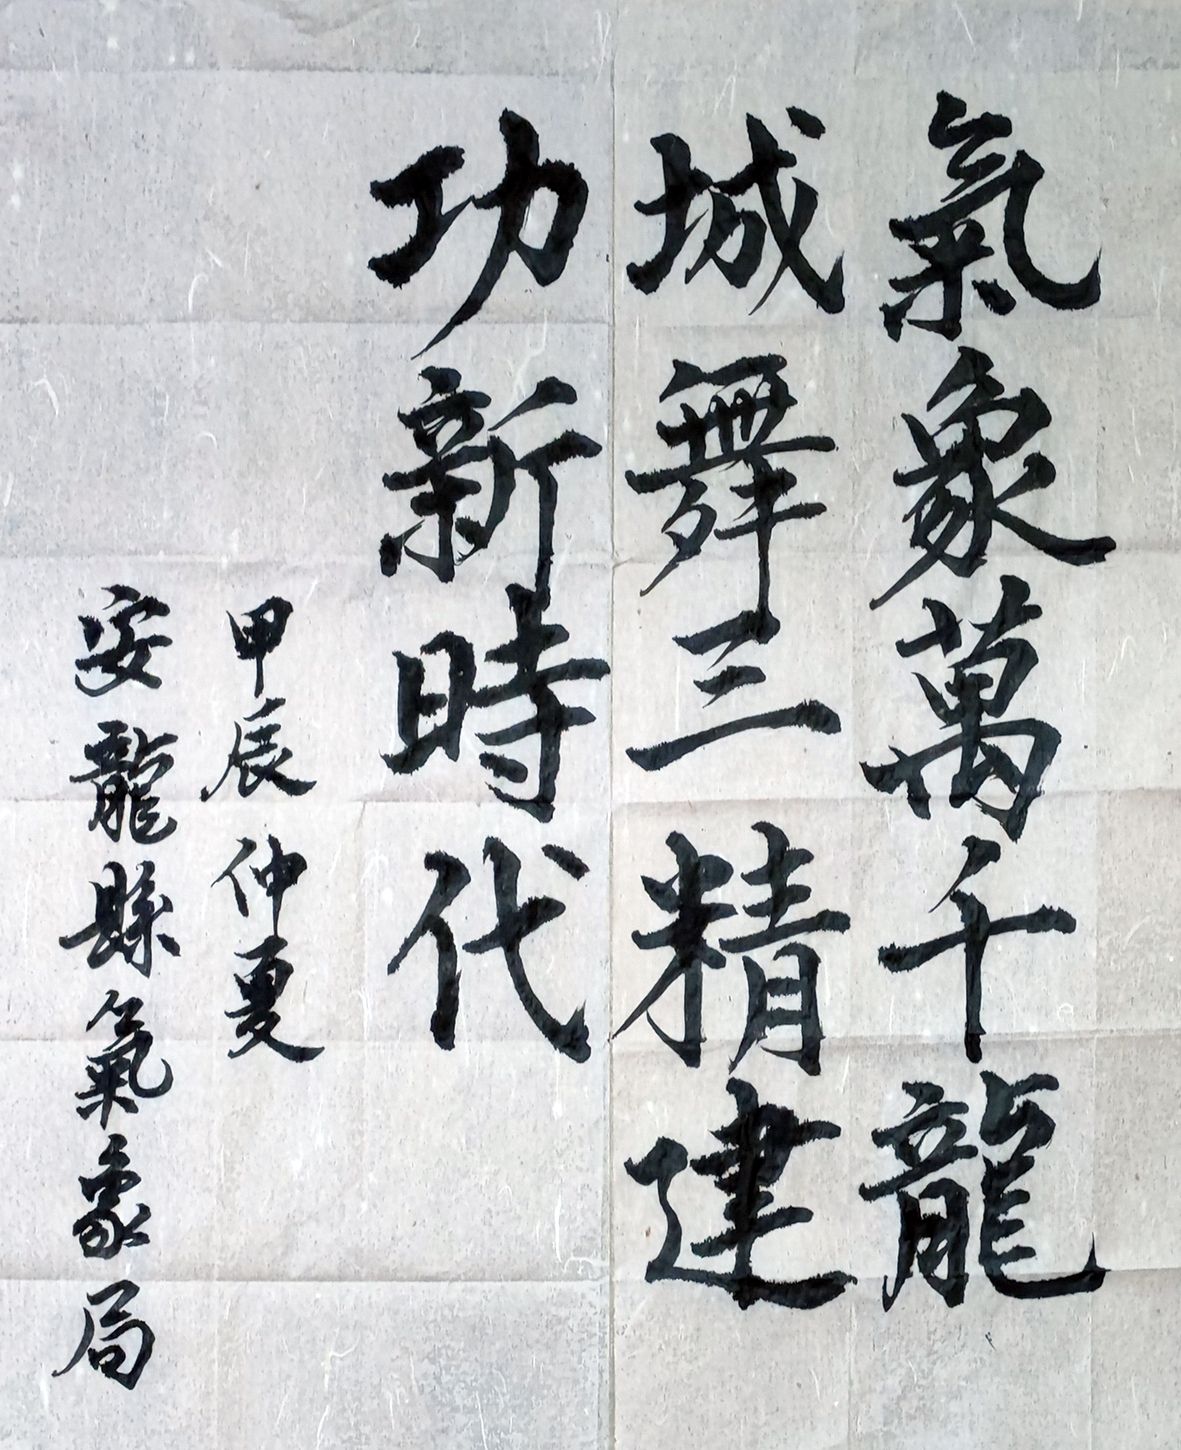 氣象萬千龍
城舞三精建
功新時代
甲辰仲夏
安龍縣氣象局